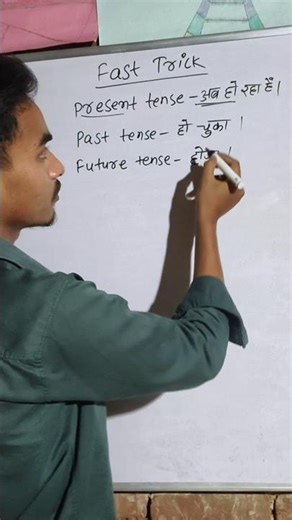 Fast Trick
Present tense - अब हो रहा है।
Past tense - हो चुका ।
Future tense - ।